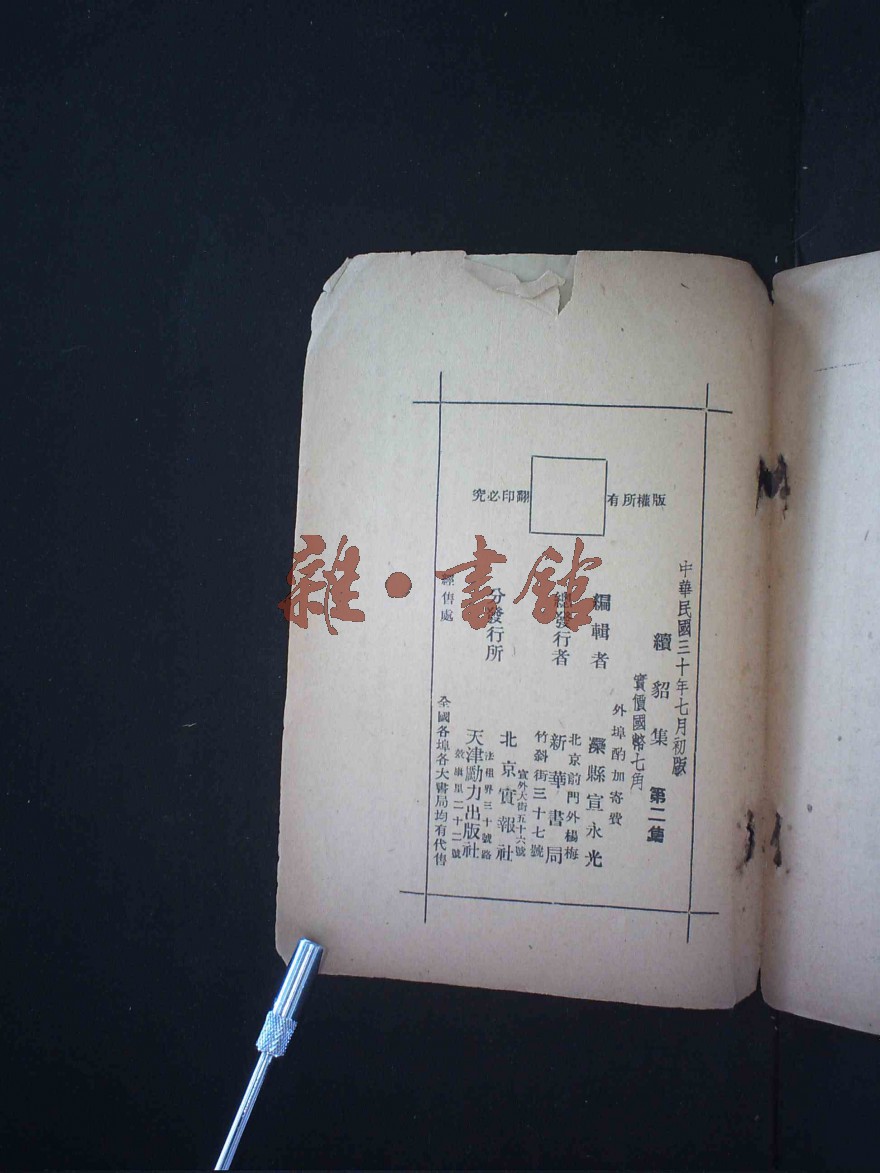 版權所有
翻印必究
中華民國三十年七月初版
續貂集 第二集
實價國幣七角
外埠酌加寄費
編輯者 灤縣宣永光
總發行者 北京前門外楊梅竹斜街三十七號 新華書局
分發行所 宣外大街五十六號 北京實報社
法租界三十號路效康里二十二號 天津勵力出版社
經售處 全國各埠各大書局均有代售
雜·書館